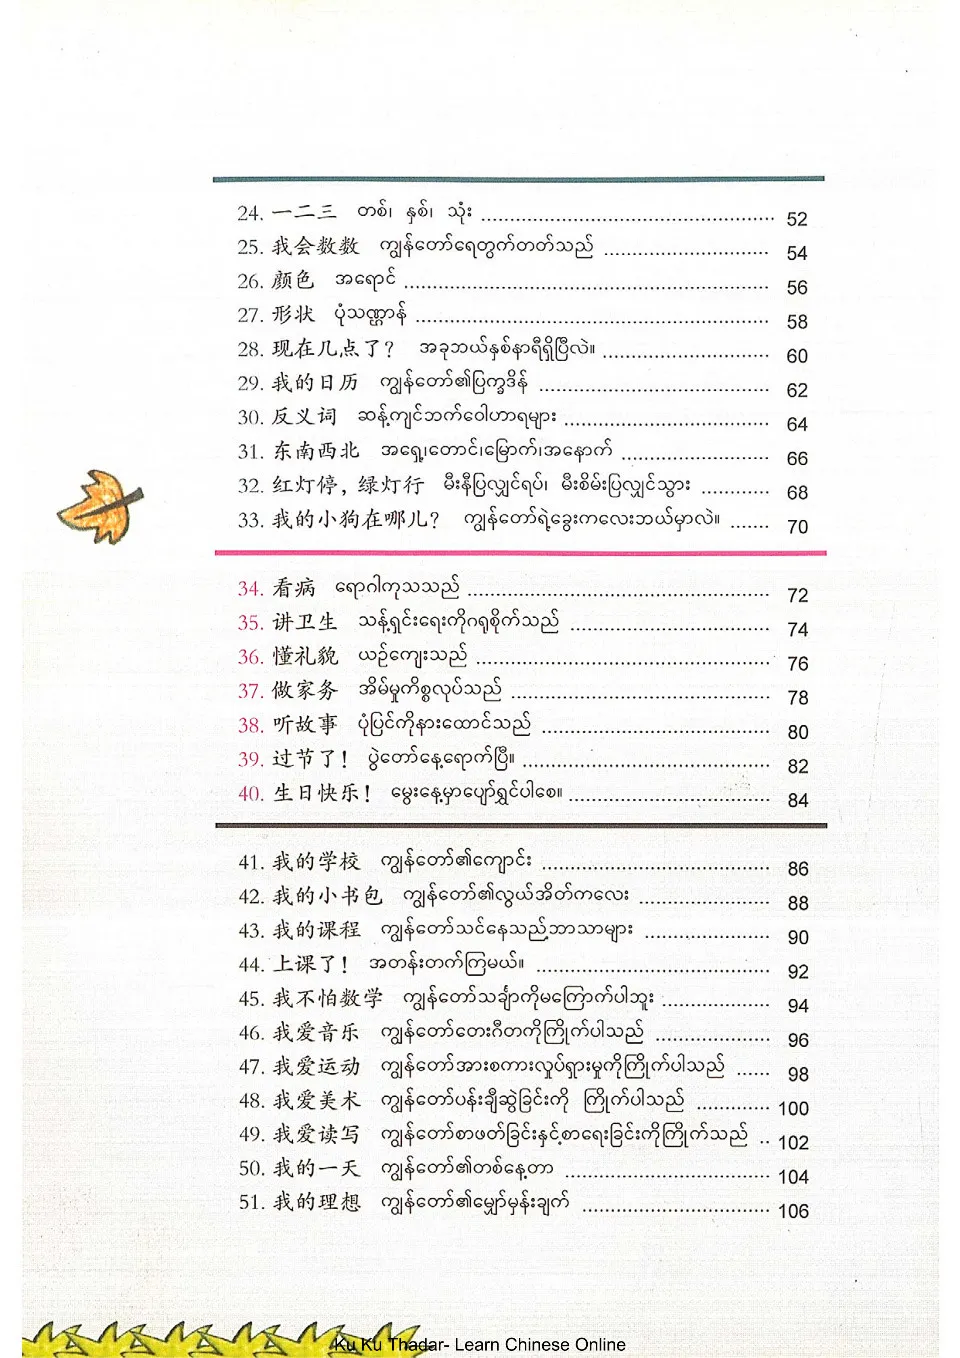 24. 一二三 တစ်၊ နှစ်၊ သုံး ........................................................ 52
25. 我会数数 ကျွန်တော်ရေတွက်တတ်သည် ............................... 54
26. 颜色 အရောင် ...................................................................... 56
27. 形状 ပုံသဏ္ဌာန် .................................................................... 58
28. 现在几点了? အခုဘယ်နှစ်နာရီရှိပြီလဲ။ ................................ 60
29. 我的日历 ကျွန်တော်၏ပြက္ခဒိန် ............................................ 62
30. 反义词 ဆန့်ကျင်ဘက်ဝေါဟာရများ ....................................... 64
31. 东南西北 အရှေ့၊တောင်၊မြောက်၊အနောက် ............................ 66
32. 红灯停, 绿灯行 မီးနီပြလျှင်ရပ်၊ မီးစိမ်းပြလျှင်သွား ............. 68
33. 我的小狗在哪儿? ကျွန်တော်ရဲ့ခွေးကလေးဘယ်မှာလဲ။ ....... 70
34. 看病 ရောဂါကုသသည် .......................................................... 72
35. 讲卫生 သန့်ရှင်းရေးကိုဂရုစိုက်သည် ...................................... 74
36. 懂礼貌 ယဉ်ကျေးသည် ........................................................ 76
37. 做家务 အိမ်မှုကိစ္စလုပ်သည် ................................................. 78
38. 听故事 ပုံပြင်ကိုနားထောင်သည် ........................................... 80
39. 过节了! ပွဲတော်နေ့ရောက်ပြီ။ ............................................... 82
40. 生日快乐! မွေးနေ့မှာပျော်ရွှင်ပါစေ။ ...................................... 84
41. 我的学校 ကျွန်တော်၏ကျောင်း ............................................ 86
42. 我的小书包 ကျွန်တော်၏လွယ်အိတ်ကလေး ......................... 88
43. 我的课程 ကျွန်တော်သင်နေသည့်ဘာသာများ ........................ 90
44. 上课了! အတန်းတက်ကြမယ်။ ............................................. 92
45. 我不怕数学 ကျွန်တော်သင်္ချာကိုမကြောက်ပါဘူး .................... 94
46. 我爱音乐 ကျွန်တော်တေးဂီတကိုကြိုက်ပါသည် ...................... 96
47. 我爱运动 ကျွန်တော်အားစကားလှုပ်ရှားမှုကိုကြိုက်ပါသည် ...... 98
48. 我爱美术 ကျွန်တော်ပန်းချီဆွဲခြင်းကို ကြိုက်ပါသည် .............. 100
49. 我爱读写 ကျွန်တော်စာဖတ်ခြင်းနှင့်စာရေးခြင်းကိုကြိုက်သည် .. 102
50. 我的一天 ကျွန်တော်၏တစ်နေ့တာ ....................................... 104
51. 我的理想 ကျွန်တော်၏မျှော်မှန်းချက် .................................... 106
Ku Ku Thadar- Learn Chinese Online